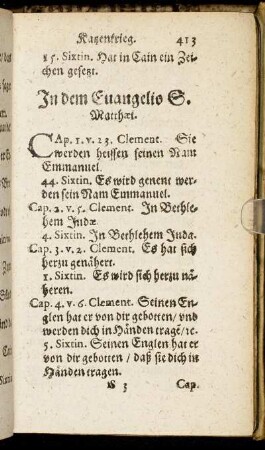 Katzenkrieg. 413
85. Sixtin. Hat in Cain ein Zei-
chen gesetzt.
In dem Euangelio S.
Matthæi.
CAp. 1. v. 23. Clement. Sie
werden heyssen seinen Nam
Emmanuel.
44. Sixtin. Es wird genent wer-
den sein Nam Emmanuel.
Cap. 2. v. 5. Clement. In Bethle-
hem Indæ
4. Sixtin. In Bethlehem Juda.
Cap. 3. v. 2. Clement. Es hat sich
herzu genähert.
1. Sixtin. Es wird sich herzu nä-
heren.
Cap. 4. v. 6. Clement. Seinen En-
glen hat er von dir gebotten / vnd
werden dich in Händen tragẽ / ꝛc.
5. Sixtin. Seinen Englen hat er
von dir gebotten / daß sie dich in
Händen tragen.
S 3 Cap.